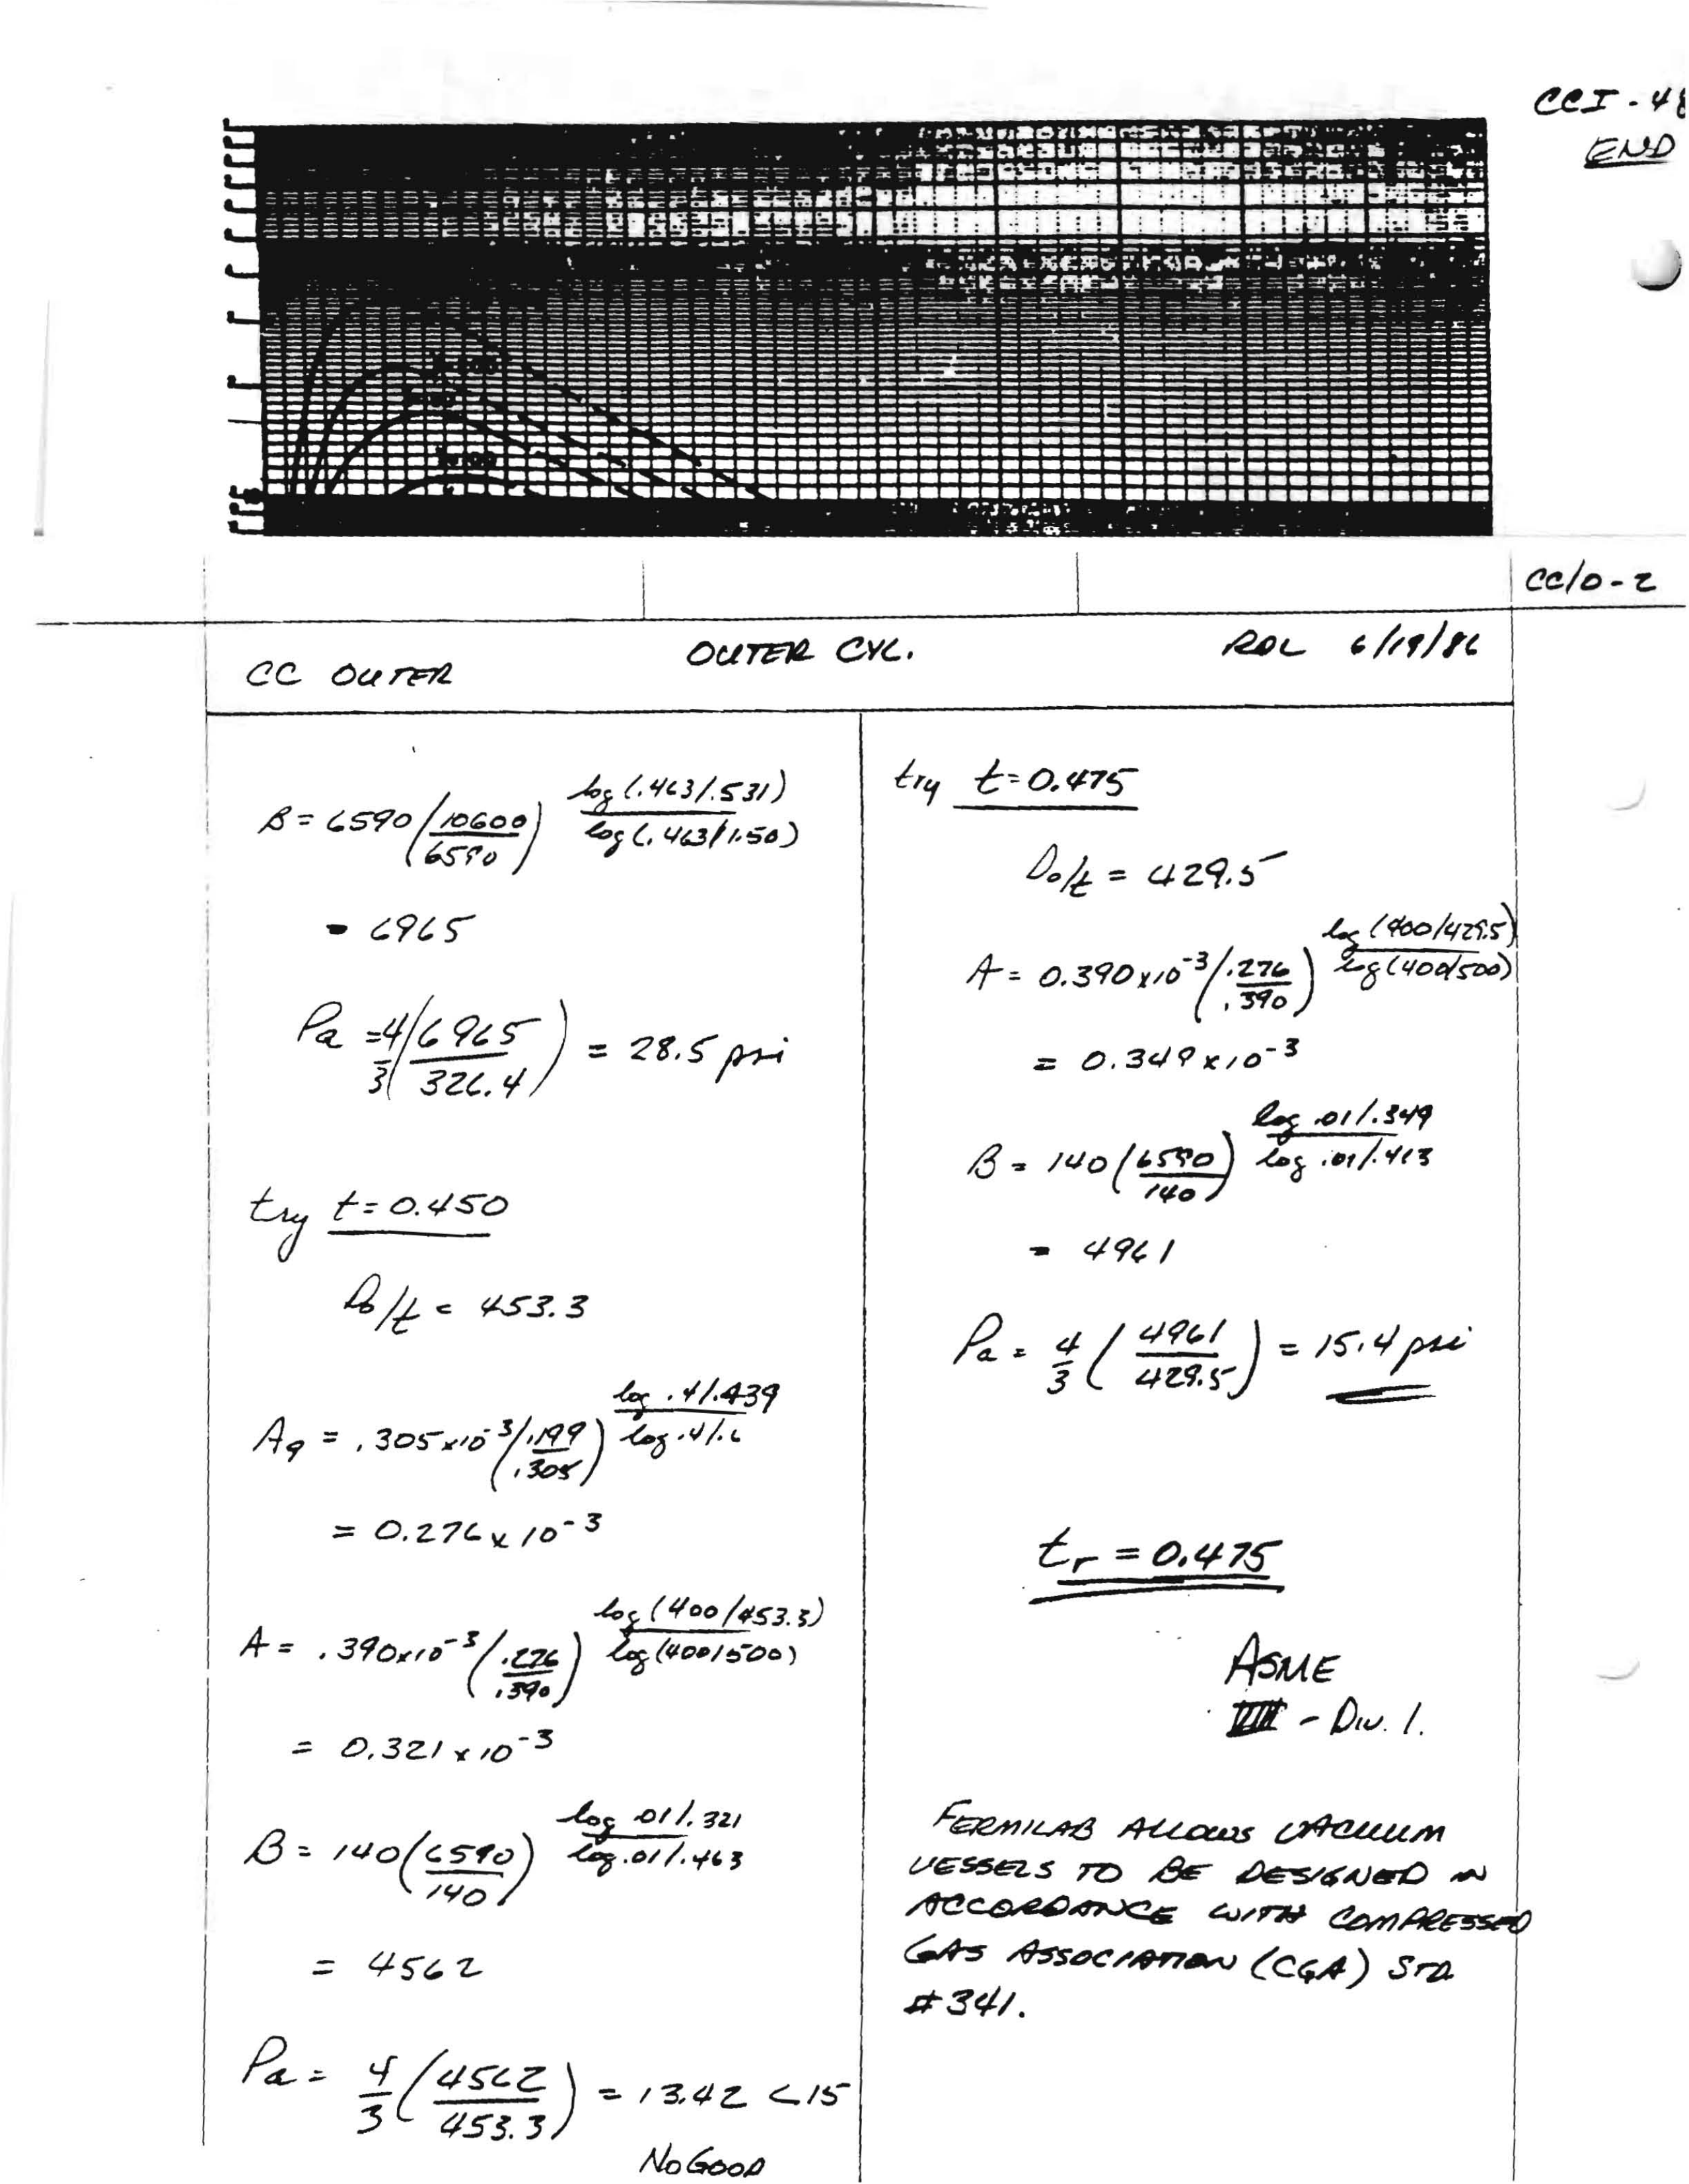 CCI-48
END
CC/O-2
CC OUTER
OUTER CYC.
RDL 6/19/86
B = 6590 (10600/6590) log (.463/.531) / log (.463/1.50)
= 6965
Pa = 4/3 (6965/326.4) = 28.5 psi
try t = 0.450
Do/t = 453.3
A9 = .305x10-3 (.199/.305) log .4/.439 / log .4/.6
= 0.276 x 10-3
A = .390x10-3 (.276/.390) log (400/453.3) / log (400/500)
= 0.321 x 10-3
B = 140 (6590/140) log .01/.321 / log .01/.463
= 4562
Pa = 4/3 (4562/453.3) = 13.42 < 15
NO GOOD
try t = 0.475
Do/t = 429.5
A = 0.390x10-3 (.276/.390) log (400/429.5) / log (400/500)
= 0.349 x 10-3
B = 140 (6590/140) log .01/.349 / log .01/.463
= 4961
Pa = 4/3 (4961/429.5) = 15.4 psi
tr = 0.475
ASME
VIII - Div. 1.
FERMILAB ALLOWS VACUUM
VESSELS TO BE DESIGNED IN
ACCORDANCE WITH COMPRESSED
GAS ASSOCIATION (CGA) STD
#341.